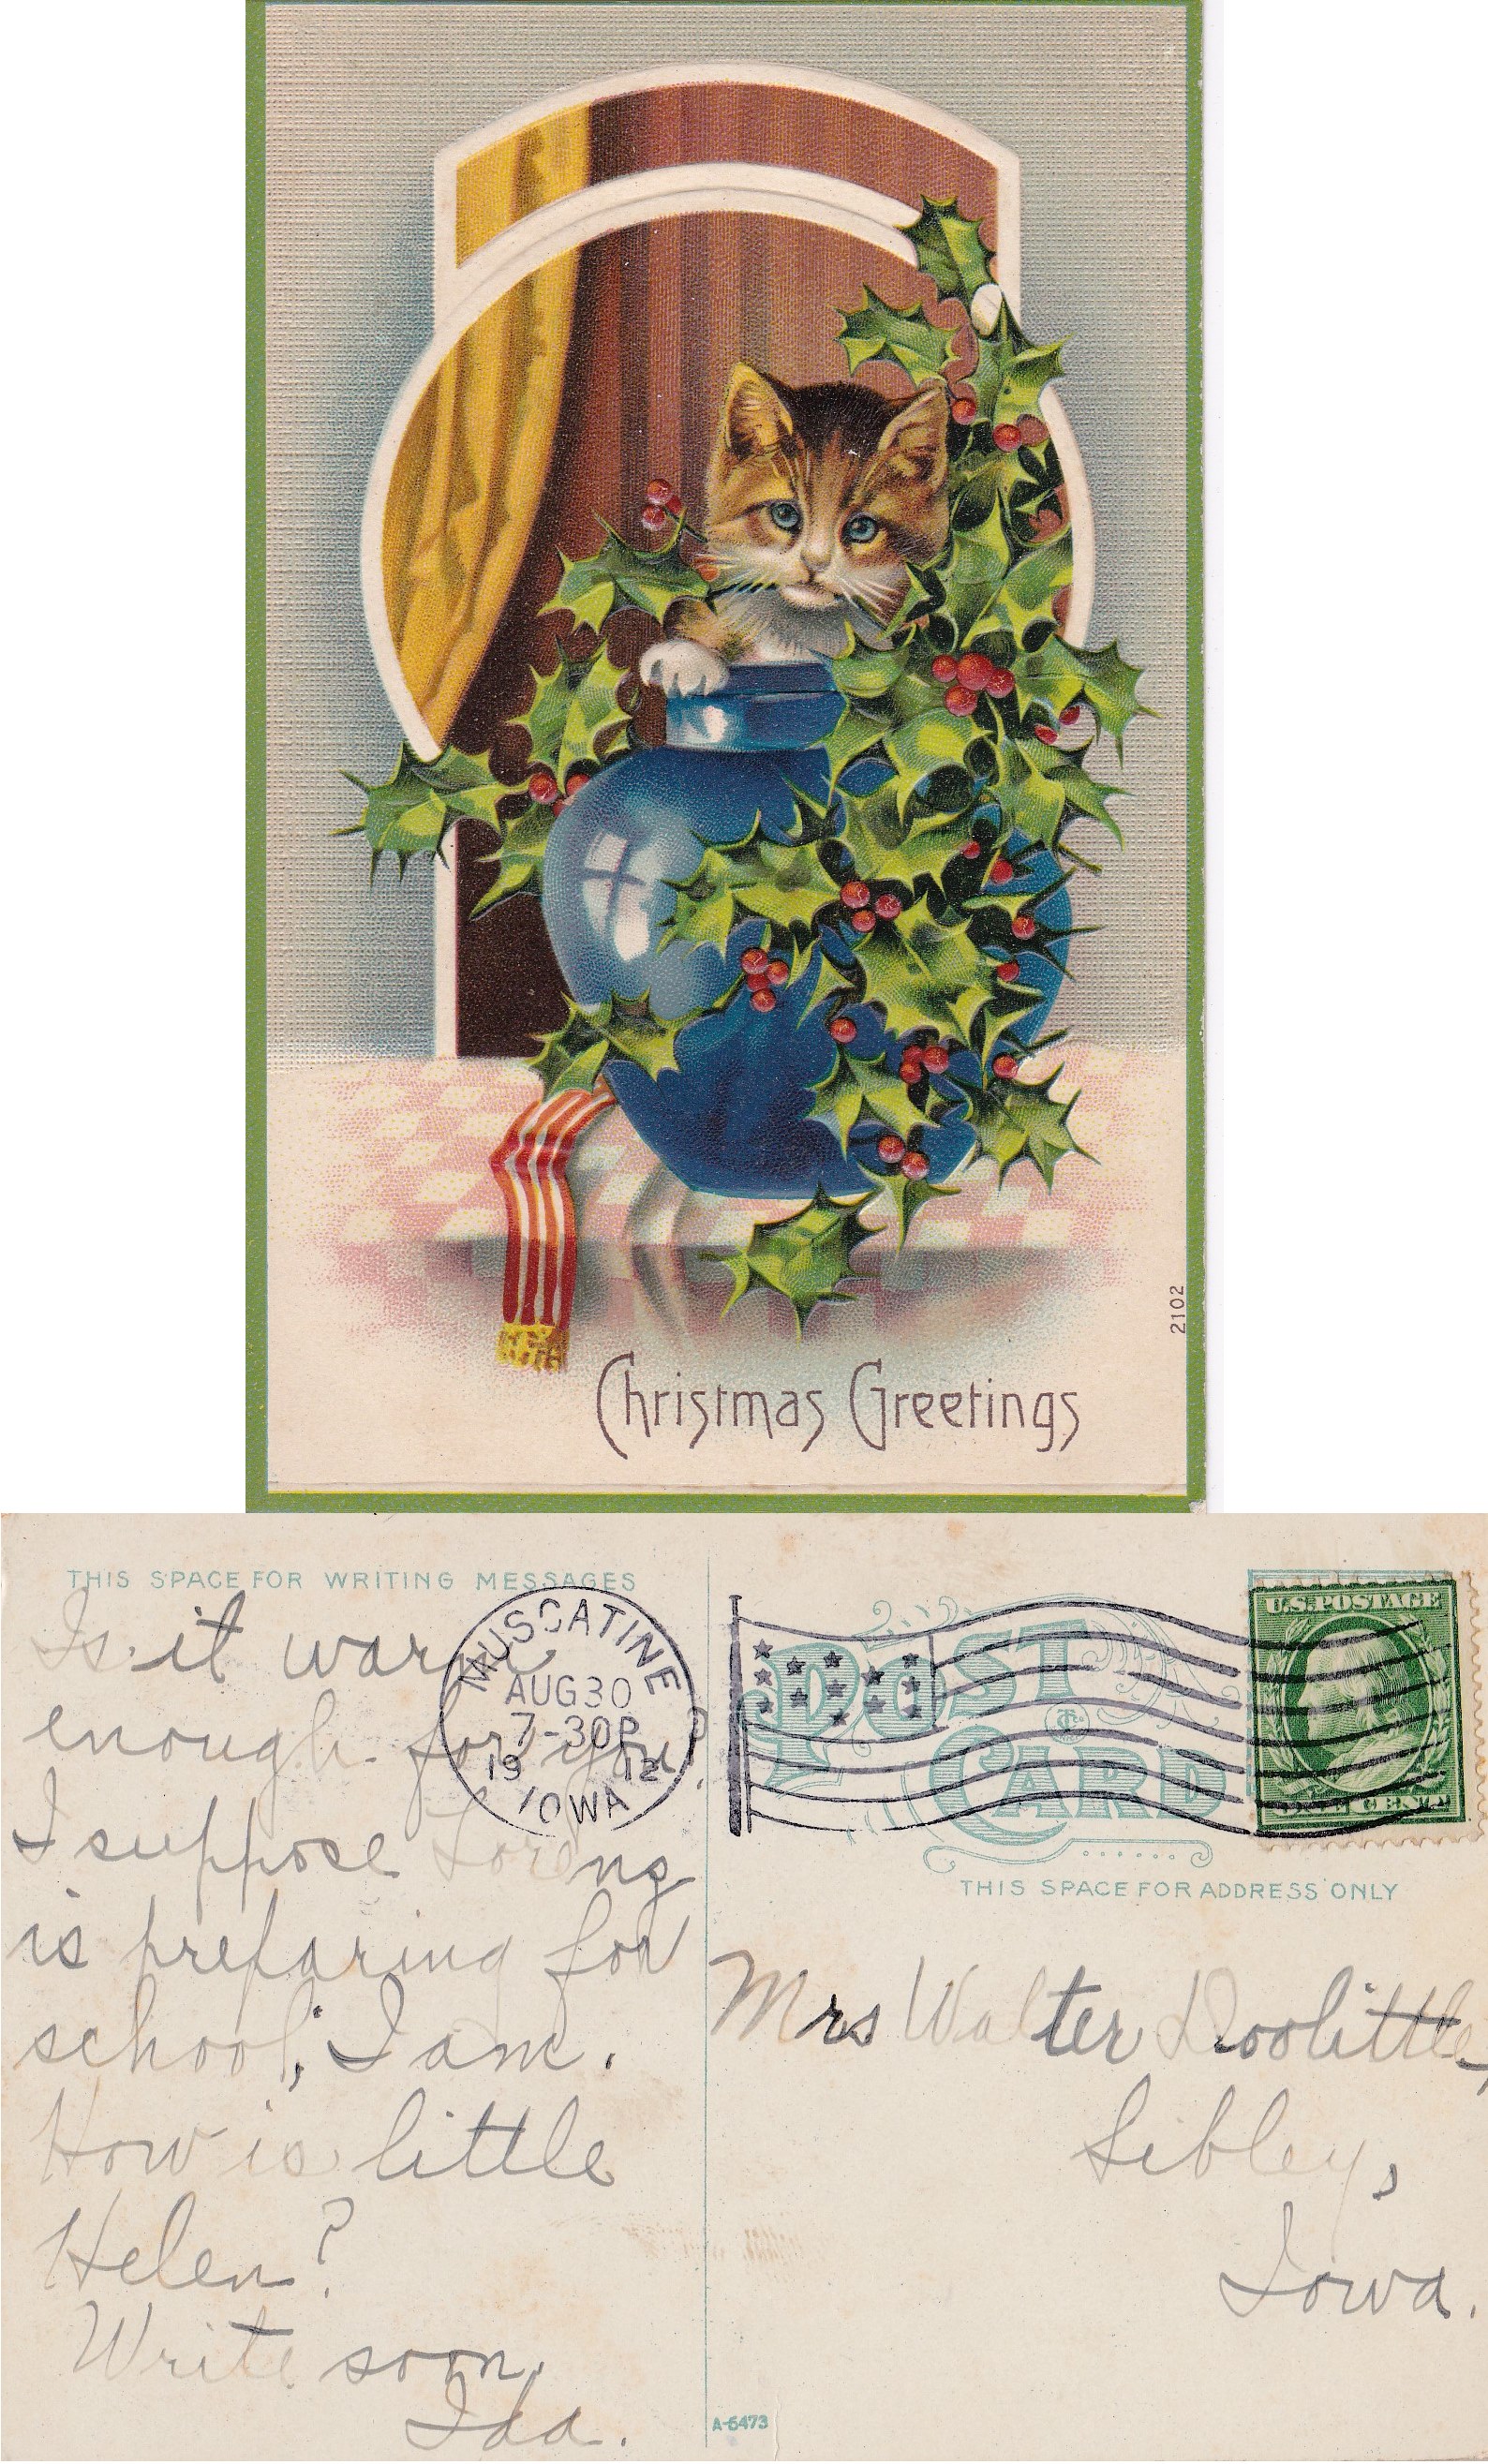 2102
Christmas Greetings
THIS SPACE FOR WRITING MESSAGES
Is it warm
enough for you?
I suppose
is preparing for
school; I am.
How is little
Helen?
Write soon,
Ida.
MUSCATINE
AUG 30
7-30P
19 12
IOWA
POST
CARD
U.S. POSTAGE
ONE CENT
THIS SPACE FOR ADDRESS ONLY
Mrs Walter Doolittle,
Sibley,
Iowa.
A-6473